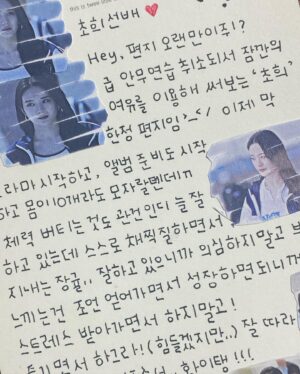 초희선배
Hey, 편지 오랜만이주?
급 안무연습 취소되서 잠깐의
여유를 이용해 써보는 '초희'
한정 편지임 이제 막
라마 시작하고, 앨범 준비도 시작
하고 몸이 10개라도 모자랄삔데ㅠ
체력 버티는 것도 관건인디 늘 잘
하고 있는데 스스로 채찍질하면서
지내는 장꾤.. 잘하고 있으니까 의심하지말고
느끼는건 조언 얻어가면서 성장하면되니까
스트레스 받아가면서 하지말고!
즐기면서 하그라! (힘들겠지만..) 잘 따라
화이탱!!!